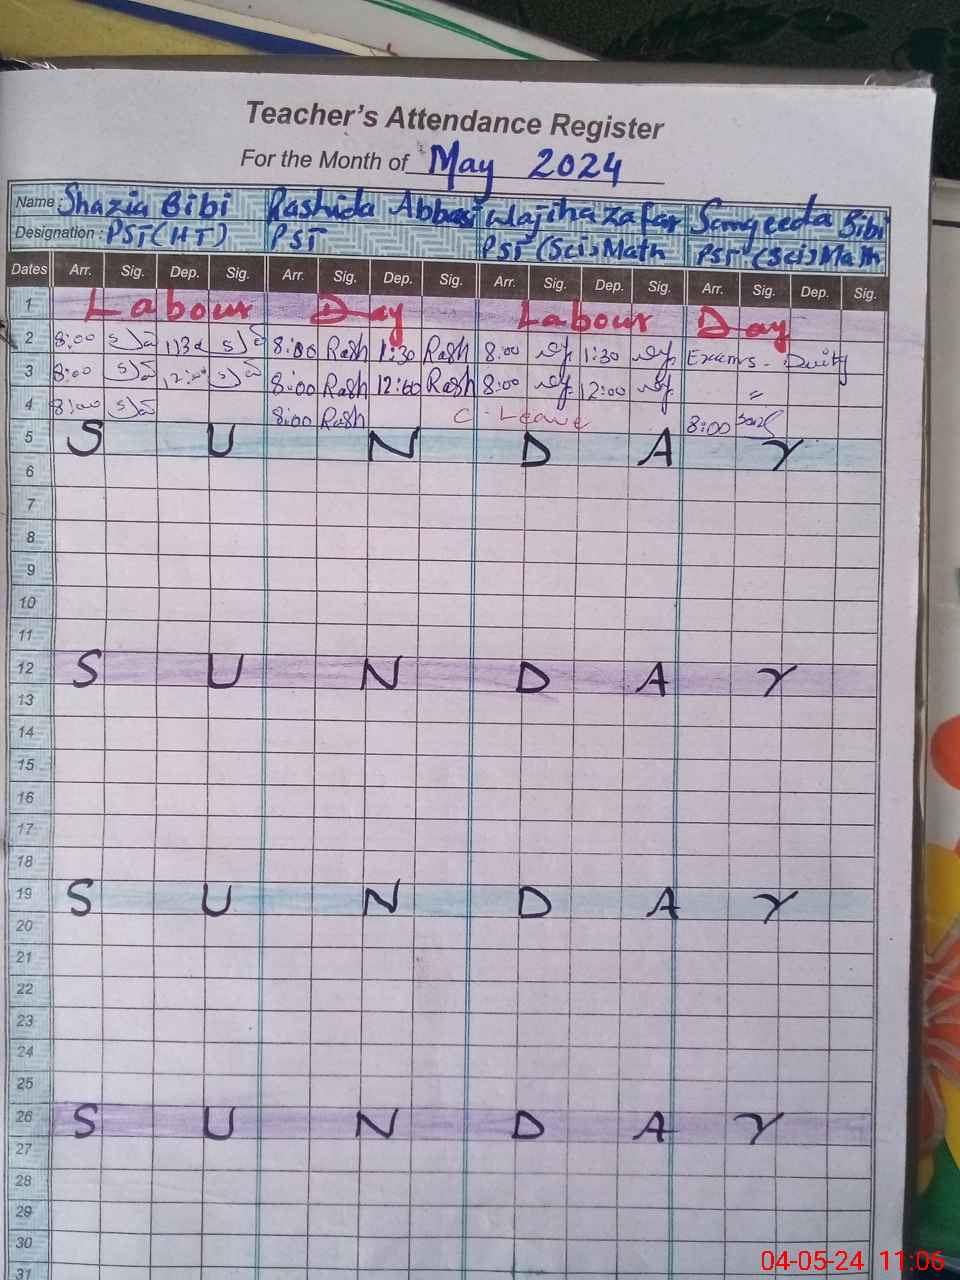 Teacher's Attendance Register
For the Month of May 2024
Name: Shazia Bibi Rashida Abbasi Wajiha Zafar Sangeeda Bibi
Designation: PST(HT) PST PST (Sci) Math PST (Sci) Math
Dates Arr. Sig. Dep. Sig. Arr. Sig. Dep. Sig. Arr. Sig. Dep. Sig. Arr. Sig. Dep. Sig.
1 Labour Day Labour Day
2 8:00 1:30 8:00 Rash 1:30 Rash 8:00 1:30 Exams - Duity
3 8:00 12:00 8:00 Rash 12:00 Rash 8:00 12:00 "
4 8:00 8:00 Rash C - Leave 8:00
5 S U N D A Y
6
7
8
9
10
11
12 S U N D A Y
13
14
15
16
17
18
19 S U N D A Y
20
21
22
23
24
25
26 S U N D A Y
27
28
29
30
31
04-05-24 11:06